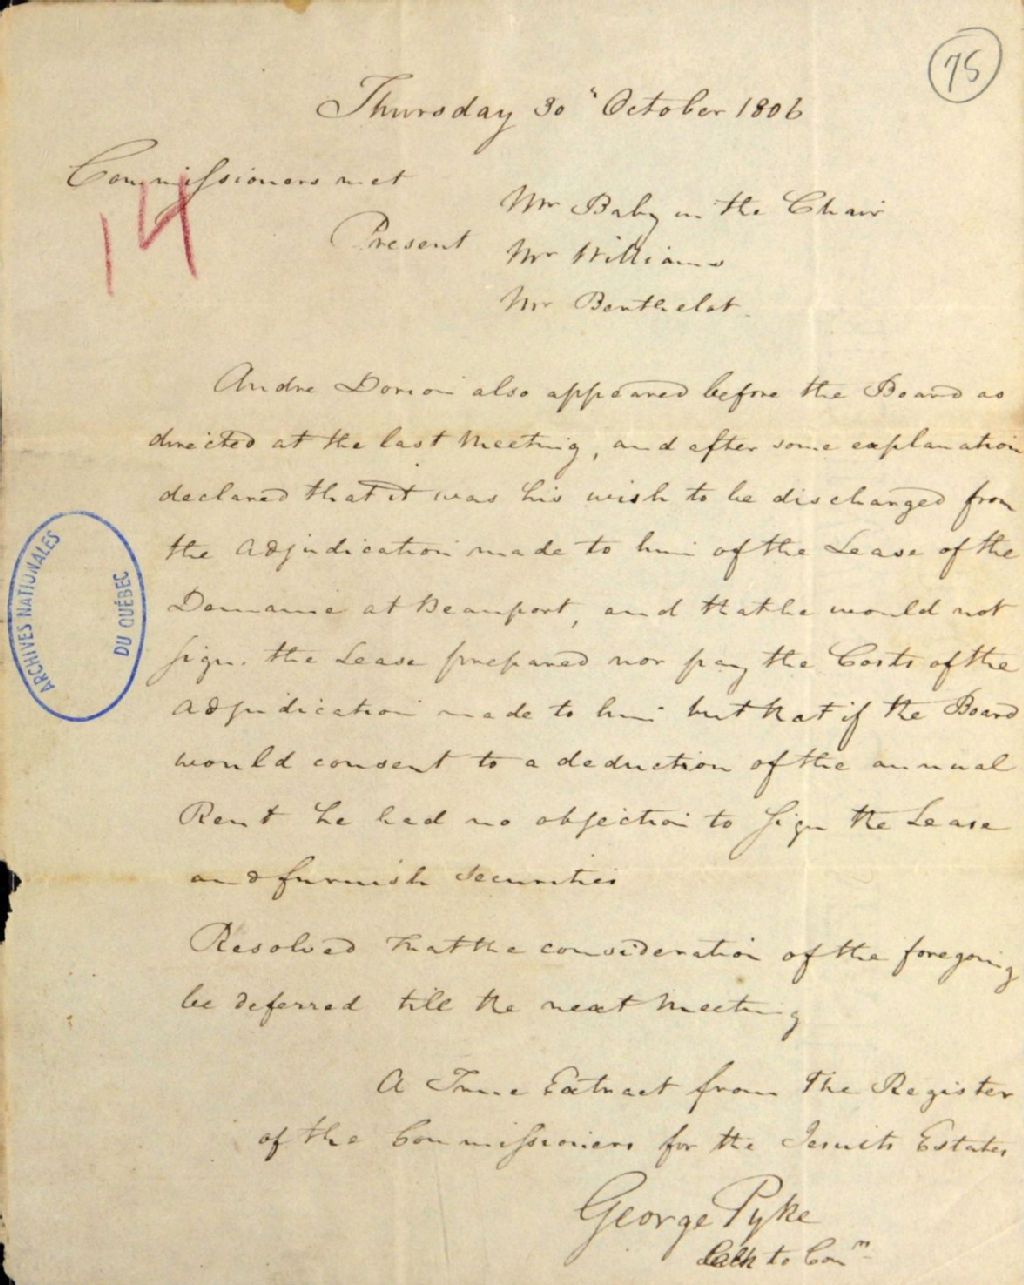 75
Thursday 30" October 1806
Commissioners met
14
Mr Baby in the Chair
Present
Mr Williams
Mr Berthelot.
Andre Dorion also appeared before the Board as
directed at the last Meeting, and after some explanation
declared that it was his wish to be discharged from
the Adjudication made to him of the Lease of the
Domaine at Beauport, and that he would not
sign the Lease prepared nor pay the Costs of the
Adjudication made to him but that if the Board
would consent to a deduction of the annual
Rent he had no objection to sign the Lease
and furnish Securities
Resolved that the consideration of the foregoing
be deferred till the next Meeting
ARCHIVES NATIONALES
DU QUÉBEC
A True Extract from the Register
of the Commissioners for the Jesuits Estates
George Pyke
to Comrs